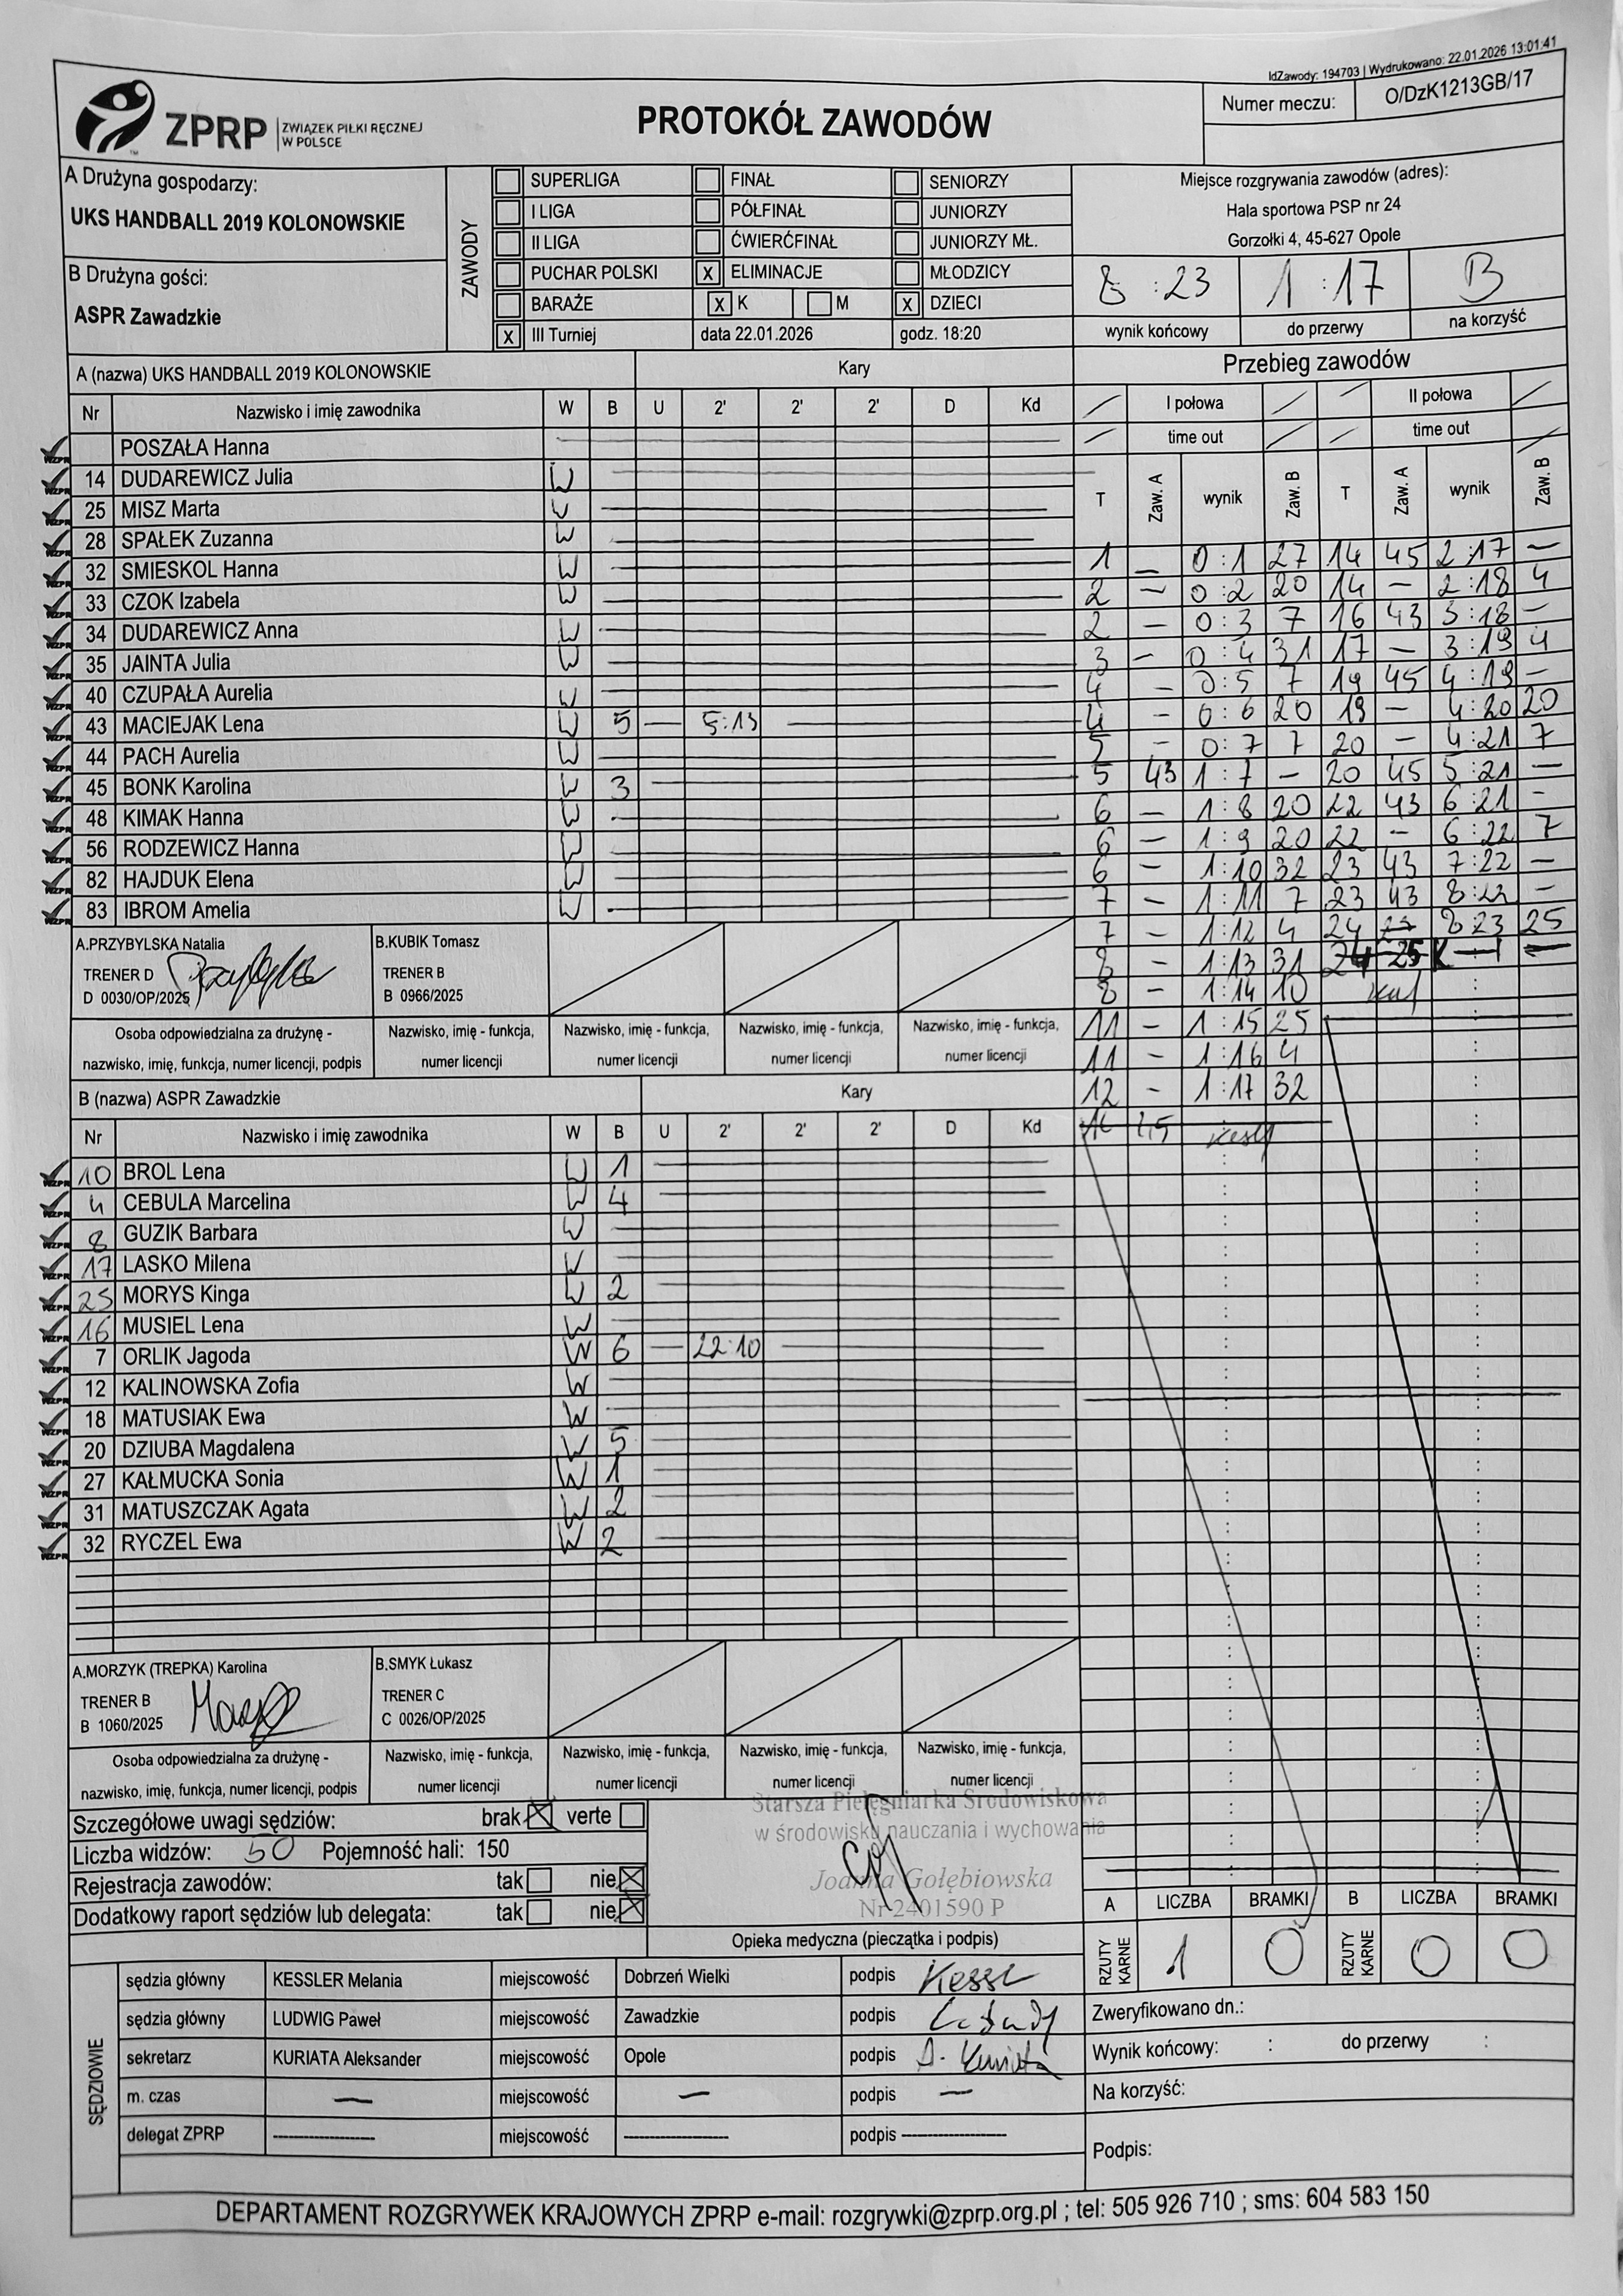 IdZawody: 194703 | Wydrukowano: 22.01.2026 13:01:41
ZPRP ZWIĄZEK PIŁKI RĘCZNEJ W POLSCE
PROTOKÓŁ ZAWODÓW
Numer meczu: O/DzK1213GB/17
A Drużyna gospodarzy:
UKS HANDBALL 2019 KOLONOWSKIE
B Drużyna gości:
ASPR Zawadzkie
ZAWODY
SUPERLIGA FINAŁ SENIORZY
I LIGA PÓŁFINAŁ JUNIORZY
II LIGA ĆWIERĆFINAŁ JUNIORZY MŁ.
PUCHAR POLSKI X ELIMINACJE MŁODZICY
BARAŻE X K M X DZIECI
X III Turniej data 22.01.2026 godz. 18:20
Miejsce rozgrywania zawodów (adres):
Hala sportowa PSP nr 24
Gorzołki 4, 45-627 Opole
8 : 23 1 : 17 B
wynik końcowy do przerwy na korzyść
A (nazwa) UKS HANDBALL 2019 KOLONOWSKIE Kary
Nr Nazwisko i imię zawodnika W B U 2' 2' 2' D Kd
POSZAŁA Hanna
14 DUDAREWICZ Julia W
25 MISZ Marta W
28 SPAŁEK Zuzanna W
32 SMIESKOL Hanna W
33 CZOK Izabela W
34 DUDAREWICZ Anna W
35 JAINTA Julia W
40 CZUPAŁA Aurelia W
43 MACIEJAK Lena W 5 — 5:13
44 PACH Aurelia W
45 BONK Karolina W 3
48 KIMAK Hanna W
56 RODZEWICZ Hanna W
82 HAJDUK Elena W
83 IBROM Amelia W
A.PRZYBYLSKA Natalia
TRENER D
D 0030/OP/2025
B.KUBIK Tomasz
TRENER B
B 0966/2025
Osoba odpowiedzialna za drużynę -
nazwisko, imię, funkcja, numer licencji, podpis
Nazwisko, imię - funkcja,
numer licencji
Nazwisko, imię - funkcja,
numer licencji
Nazwisko, imię - funkcja,
numer licencji
Nazwisko, imię - funkcja,
numer licencji
B (nazwa) ASPR Zawadzkie Kary
Nr Nazwisko i imię zawodnika W B U 2' 2' 2' D Kd
10 BROL Lena W 1
4 CEBULA Marcelina W 4
8 GUZIK Barbara W
17 LASKO Milena W
25 MORYS Kinga W 2
16 MUSIEL Lena W
7 ORLIK Jagoda W 6 — 22:10
12 KALINOWSKA Zofia W
18 MATUSIAK Ewa W
20 DZIUBA Magdalena W 5
27 KAŁMUCKA Sonia W 1
31 MATUSZCZAK Agata W 2
32 RYCZEL Ewa W 2
A.MORZYK (TREPKA) Karolina
TRENER B
B 1060/2025
B.SMYK Łukasz
TRENER C
C 0026/OP/2025
Osoba odpowiedzialna za drużynę -
nazwisko, imię, funkcja, numer licencji, podpis
Nazwisko, imię - funkcja,
numer licencji
Nazwisko, imię - funkcja,
numer licencji
Nazwisko, imię - funkcja,
numer licencji
Nazwisko, imię - funkcja,
numer licencji
Przebieg zawodów
I połowa II połowa
time out time out
T Zaw. A wynik Zaw. B T Zaw. A wynik Zaw. B
1 — 0:1 27 14 45 2:17 —
2 — 0:2 20 14 — 2:18 4
2 — 0:3 7 16 43 3:18 —
3 — 0:4 31 17 — 3:19 4
4 — 0:5 7 19 45 4:19 —
4 — 0:6 20 19 — 4:20 20
5 — 0:7 7 20 — 4:21 7
5 43 1:7 — 20 45 5:21 —
6 — 1:8 20 22 43 6:21 —
6 — 1:9 20 22 — 6:22 7
6 — 1:10 32 23 43 7:22 —
7 — 1:11 7 23 43 8:22 —
7 — 1:12 4 24 8:23 25
8 — 1:13 31 24 25 K
8 — 1:14 10
11 — 1:15 25
11 — 1:16 4
12 — 1:17 32
Szczegółowe uwagi sędziów: brak X verte
Liczba widzów: 50 Pojemność hali: 150
Rejestracja zawodów: tak nie X
Dodatkowy raport sędziów lub delegata: tak nie X
Starsza Pielęgniarka Środowiskowa
w środowisku nauczania i wychowania
Joanna Gołębiowska
Nr 2401590 P
Opieka medyczna (pieczątka i podpis)
A LICZBA BRAMKI B LICZBA BRAMKI
RZUTY KARNE 1 0 RZUTY KARNE 0 0
SĘDZIOWIE
sędzia główny KESSLER Melania miejscowość Dobrzeń Wielki podpis
sędzia główny LUDWIG Paweł miejscowość Zawadzkie podpis
sekretarz KURIATA Aleksander miejscowość Opole podpis A. Kuriata
m. czas — miejscowość — podpis —
delegat ZPRP miejscowość podpis
Zweryfikowano dn.:
Wynik końcowy: : do przerwy :
Na korzyść:
Podpis:
DEPARTAMENT ROZGRYWEK KRAJOWYCH ZPRP e-mail: rozgrywki@zprp.org.pl ; tel: 505 926 710 ; sms: 604 583 150